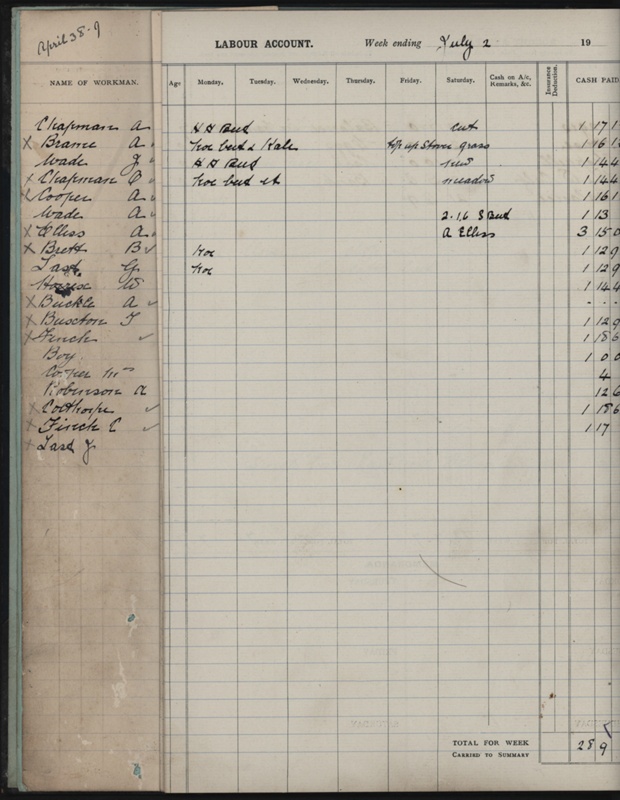 April 38-9
LABOUR ACCOUNT. Week ending July 2 19
NAME OF WORKMAN. Age Monday. Tuesday. Wednesday. Thursday. Friday. Saturday. Cash on A/c, Remarks, &c. Insurance Deduction. CASH PAID
Chapman A H H Beet cut 1 17 1
X Brame A Hoe beet & Kale up Stover grass 1 16 1
Wade J H H Beet new 1 14 4
X Chapman C Hoe beet meadow 1 14 4
X Cooper A 1 16 1
Wade A 2.16 S Beet 1 13
X Ellis A A Ellis 3 15 0
X Brett B Hoe 1 12 9
Last G Hoe 1 12 9
W 1 14 4
X Buckle A - - -
X Buxton T 1 12 9
X Finch 1 18 6
Boy 1 0 0
Cooper Mrs 4
Robinson A 12 6
X Colthorpe 1 18 6
X Finch C 1 17
X Last J
TOTAL FOR WEEK 28 9
CARRIED TO SUMMARY